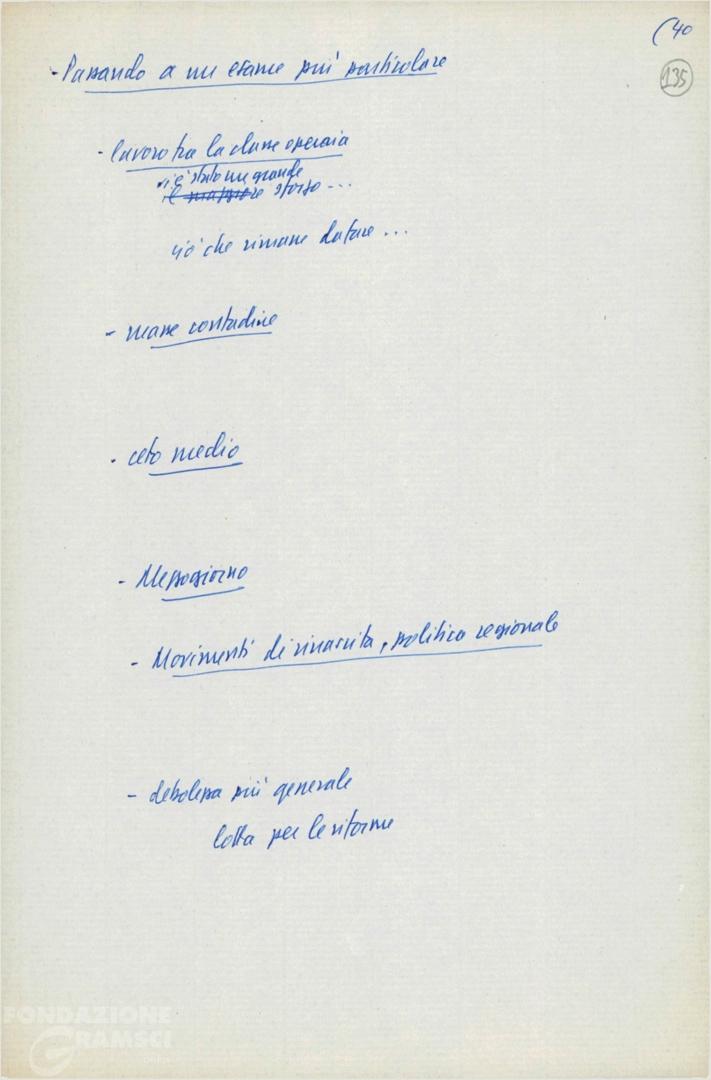 (40
135
- Passando a un esame più particolare
- lavoro tra la classe operaia
vi è stato un grande
il maggiore sforzo ...
ciò che rimane da fare ...
- masse contadine
- ceto medio
- Mezzogiorno
- Movimenti di rinascita, politica regionale
- debolezza più generale
lotta per le riforme
FONDAZIONE
GRAMSCI